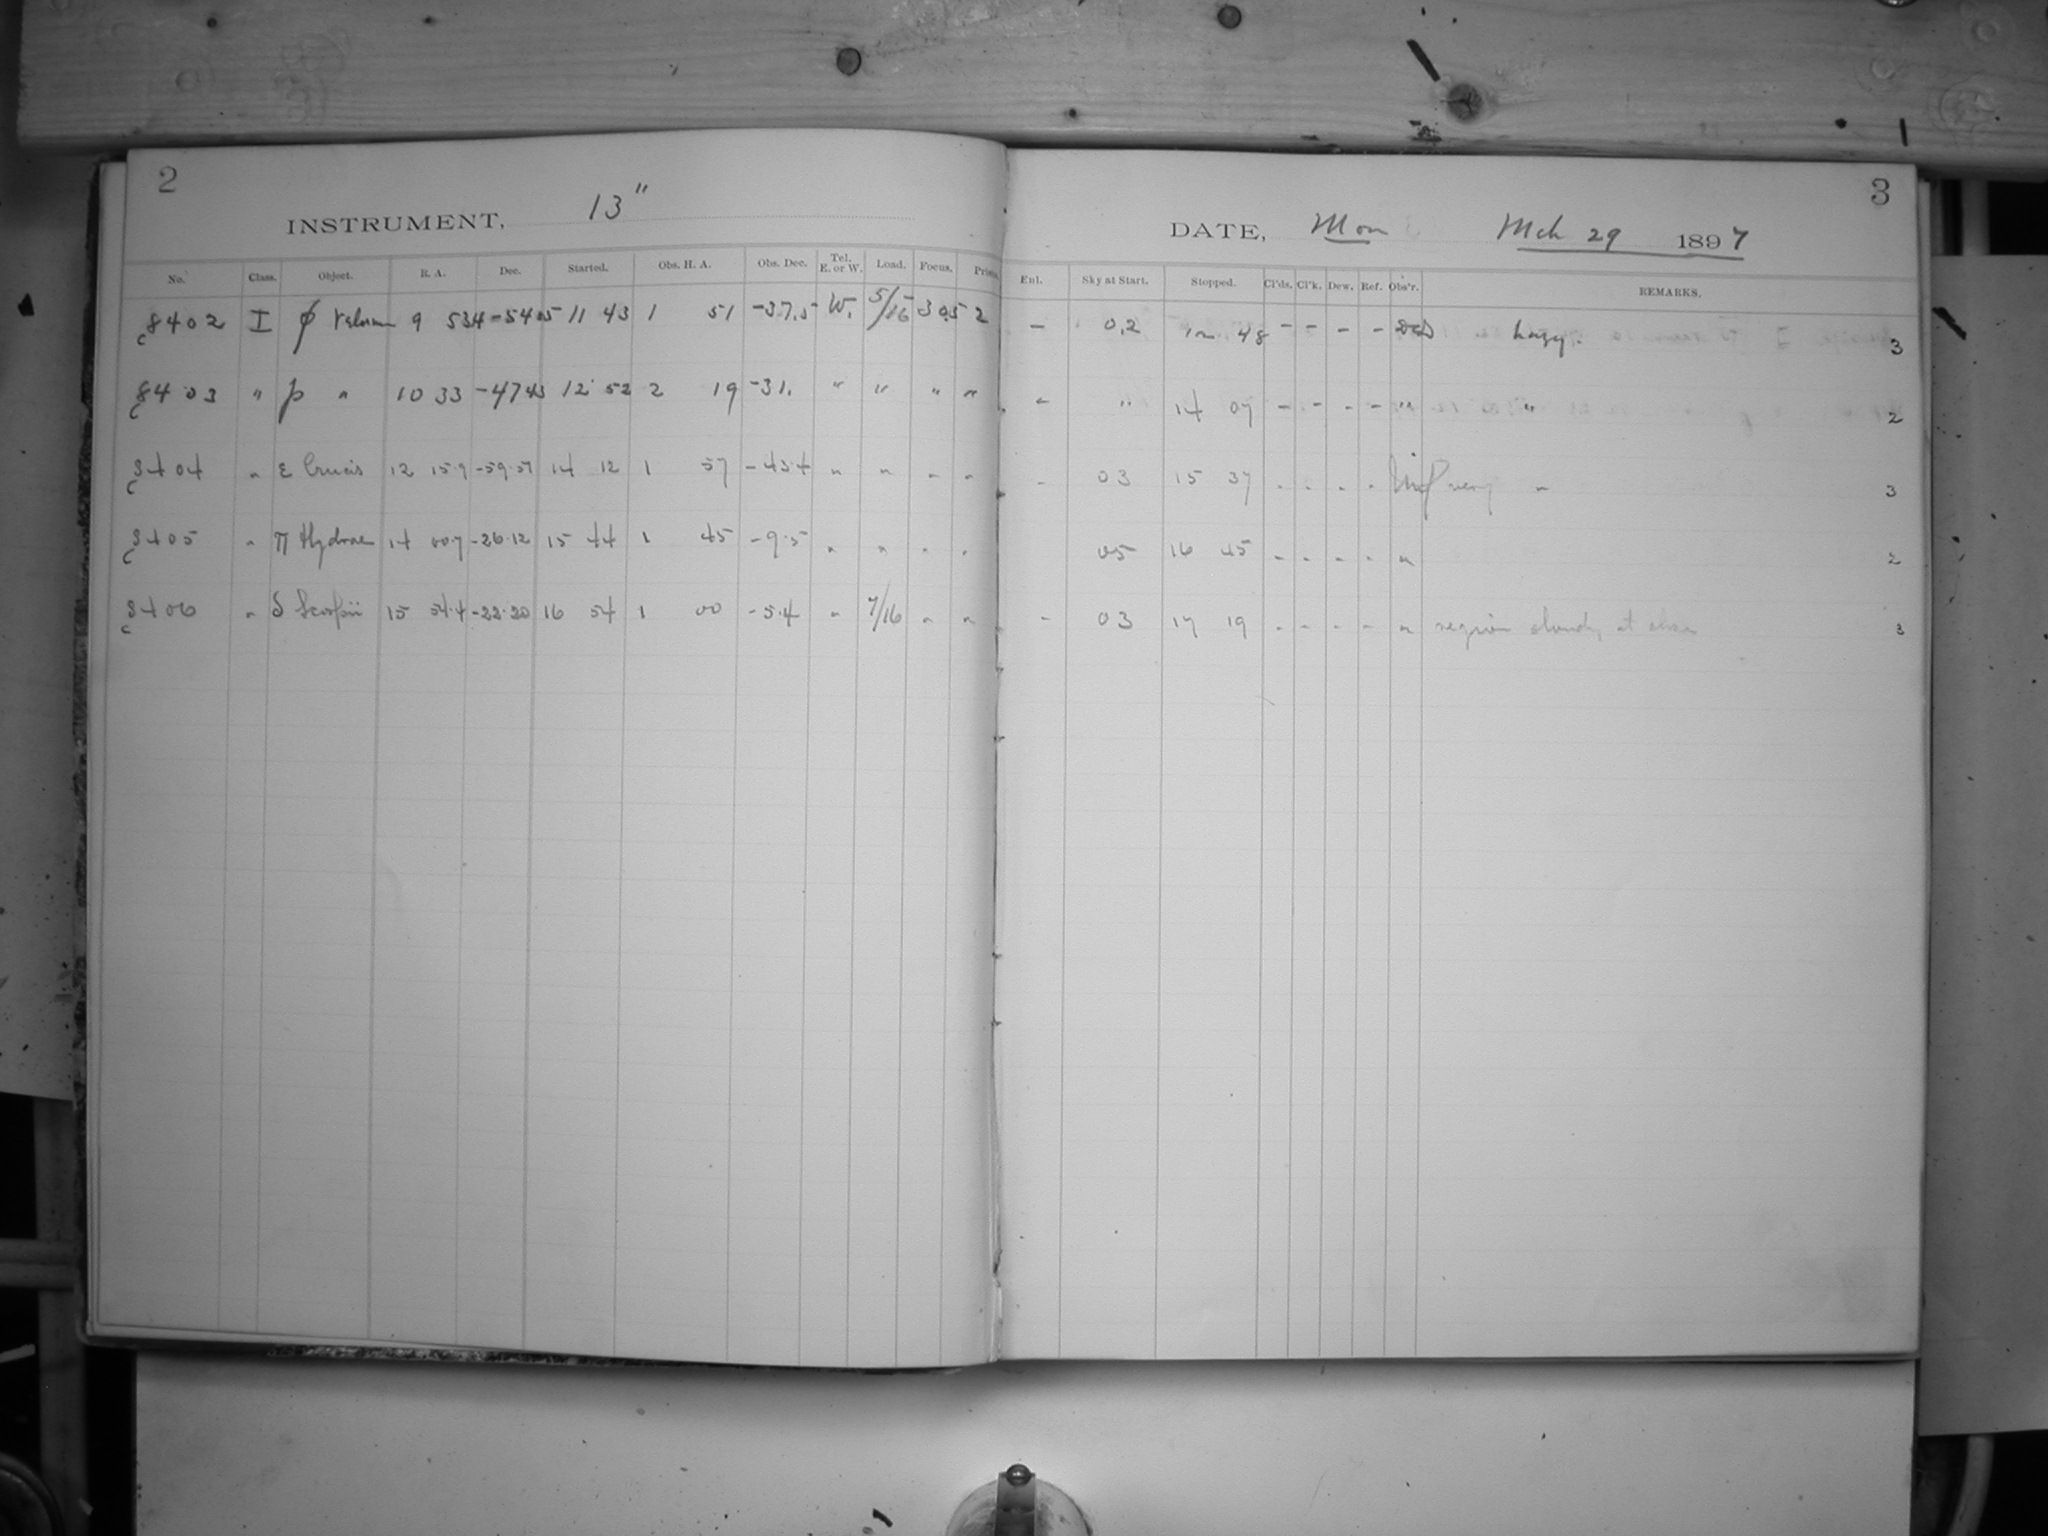 2
INSTRUMENT, 13"
No. Class. Object. R. A. Dec. Started. Obs. H. A. Obs. Dec. Tel. E. or W. Load. Focus.
8402 I φ Velorum 9 53.4 -54 05 11 43 1 51 -37.5 W. 5/16 30.5 2
8403 " p " 10 33 -47 43 12 52 2 19 -31. " " " "
8404 " ε Crucis 12 15.9 -59.51 14 12 1 57 -43.4 " " " "
8405 " π Hydrae 14 00.7 -26.12 15 44 1 45 -9.5 " " " "
8406 " δ Scorpii 15 54.4 -22.20 16 54 1 00 -5.4 " 7/16 " "
3
DATE, Mon Mch 29 1897
Enl. Sky at Start. Stopped. Cl'ds. Cl'k. Dew. Ref. Obs'r. REMARKS.
- 0.2 12 48 - - - - hazy. 3
- " 14 07 - - - - " " 2
- 03 15 37 - - - - very " 3
05 16 45 - - - - " 2
- 03 17 19 - - - - " region cloudy at close 3